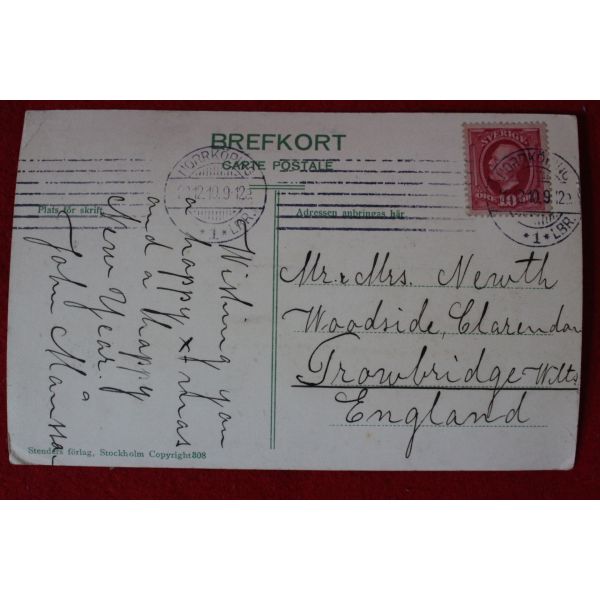 BREFKORT
CARTE POSTALE
Plats för skrift
Adressen anbringas här
SVERIGE
10
NORRKÖPING
12.10.9-12
*1* LBR.
NORRKÖPING
*1* LBR.
Wishing you
a happy xmas
and a happy
New Year.
John
Mr. & Mrs. Newth
Woodside, Clarendon
Trowbridge-Wilts
England
Stenders förlag, Stockholm Copyright 808